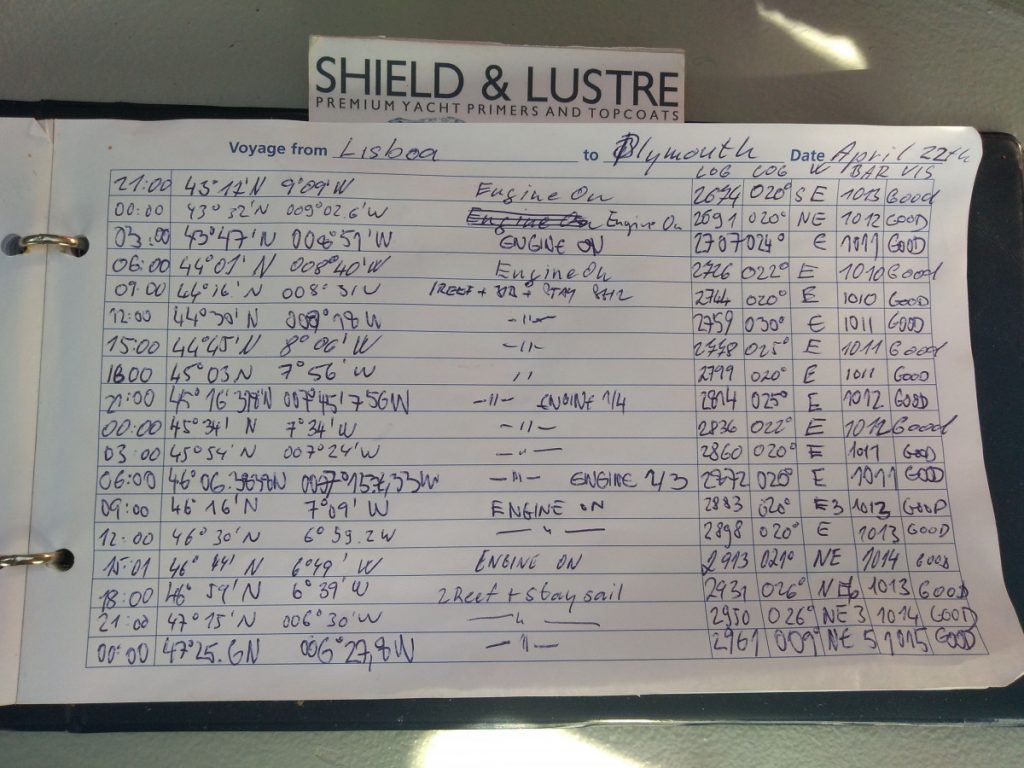 SHIELD & LUSTRE
PREMIUM YACHT PRIMERS AND TOPCOATS
Voyage from Lisboa to Plymouth Date April 22th
LOG COG W BAR VIS
21:00 43°11'N 9°09'W Engine On 2674 020° SE 1013 Good
00:00 43°32'N 009°02.6'W Engine On 2691 020° NE 1012 GOOD
03:00 43°47'N 008°51'W ENGINE ON 2707 024° E 1011 GOOD
06:00 44°01'N 008°40'W Engine On 2726 022° E 1010 Good
09:00 44°16'N 008°31W 1REEF + + STAY 2744 020° E 1010 GOOD
12:00 44°30'N 18W -11- 2759 030° E 1011 GOOD
15:00 44°45'N 8°06'W -11- 2778 025° E 1011 Good
1800 45°03N 7°56'W 11 2799 020° E 1011 GOOD
21:00 45°16' 007°45'756W -11- ENGINE 1/4 2814 025° E 1012 GOOD
00:00 45°34'N 7°34'W -11- 2836 022° E 1012 Good
03:00 45°54'N 007°24'W -"- 2860 020° E 1011 GOOD
06:00 46°06. -11- ENGINE 1/3 2872 020° E 1011 GOOD
09:00 46°16'N 7°09'W ENGINE ON 2883 020° E3 1013 GOOD
12:00 46°30'N 6°59.2W — " — 2898 020° E 1013 GOOD
15:01 46°44'N 6°49'W ENGINE ON 2913 021° NE 1014 GOOD
18:00 46°59'N 6°39'W 2Reef + Stay sail 2931 026° 1013 GOOD
21:00 47°15'N 006°30'W — " — 2950 026° NE 3 1014 GOOD
00:00 47°25.6N 006°27,8W -11- 2961 009° NE 5 1015 GOOD